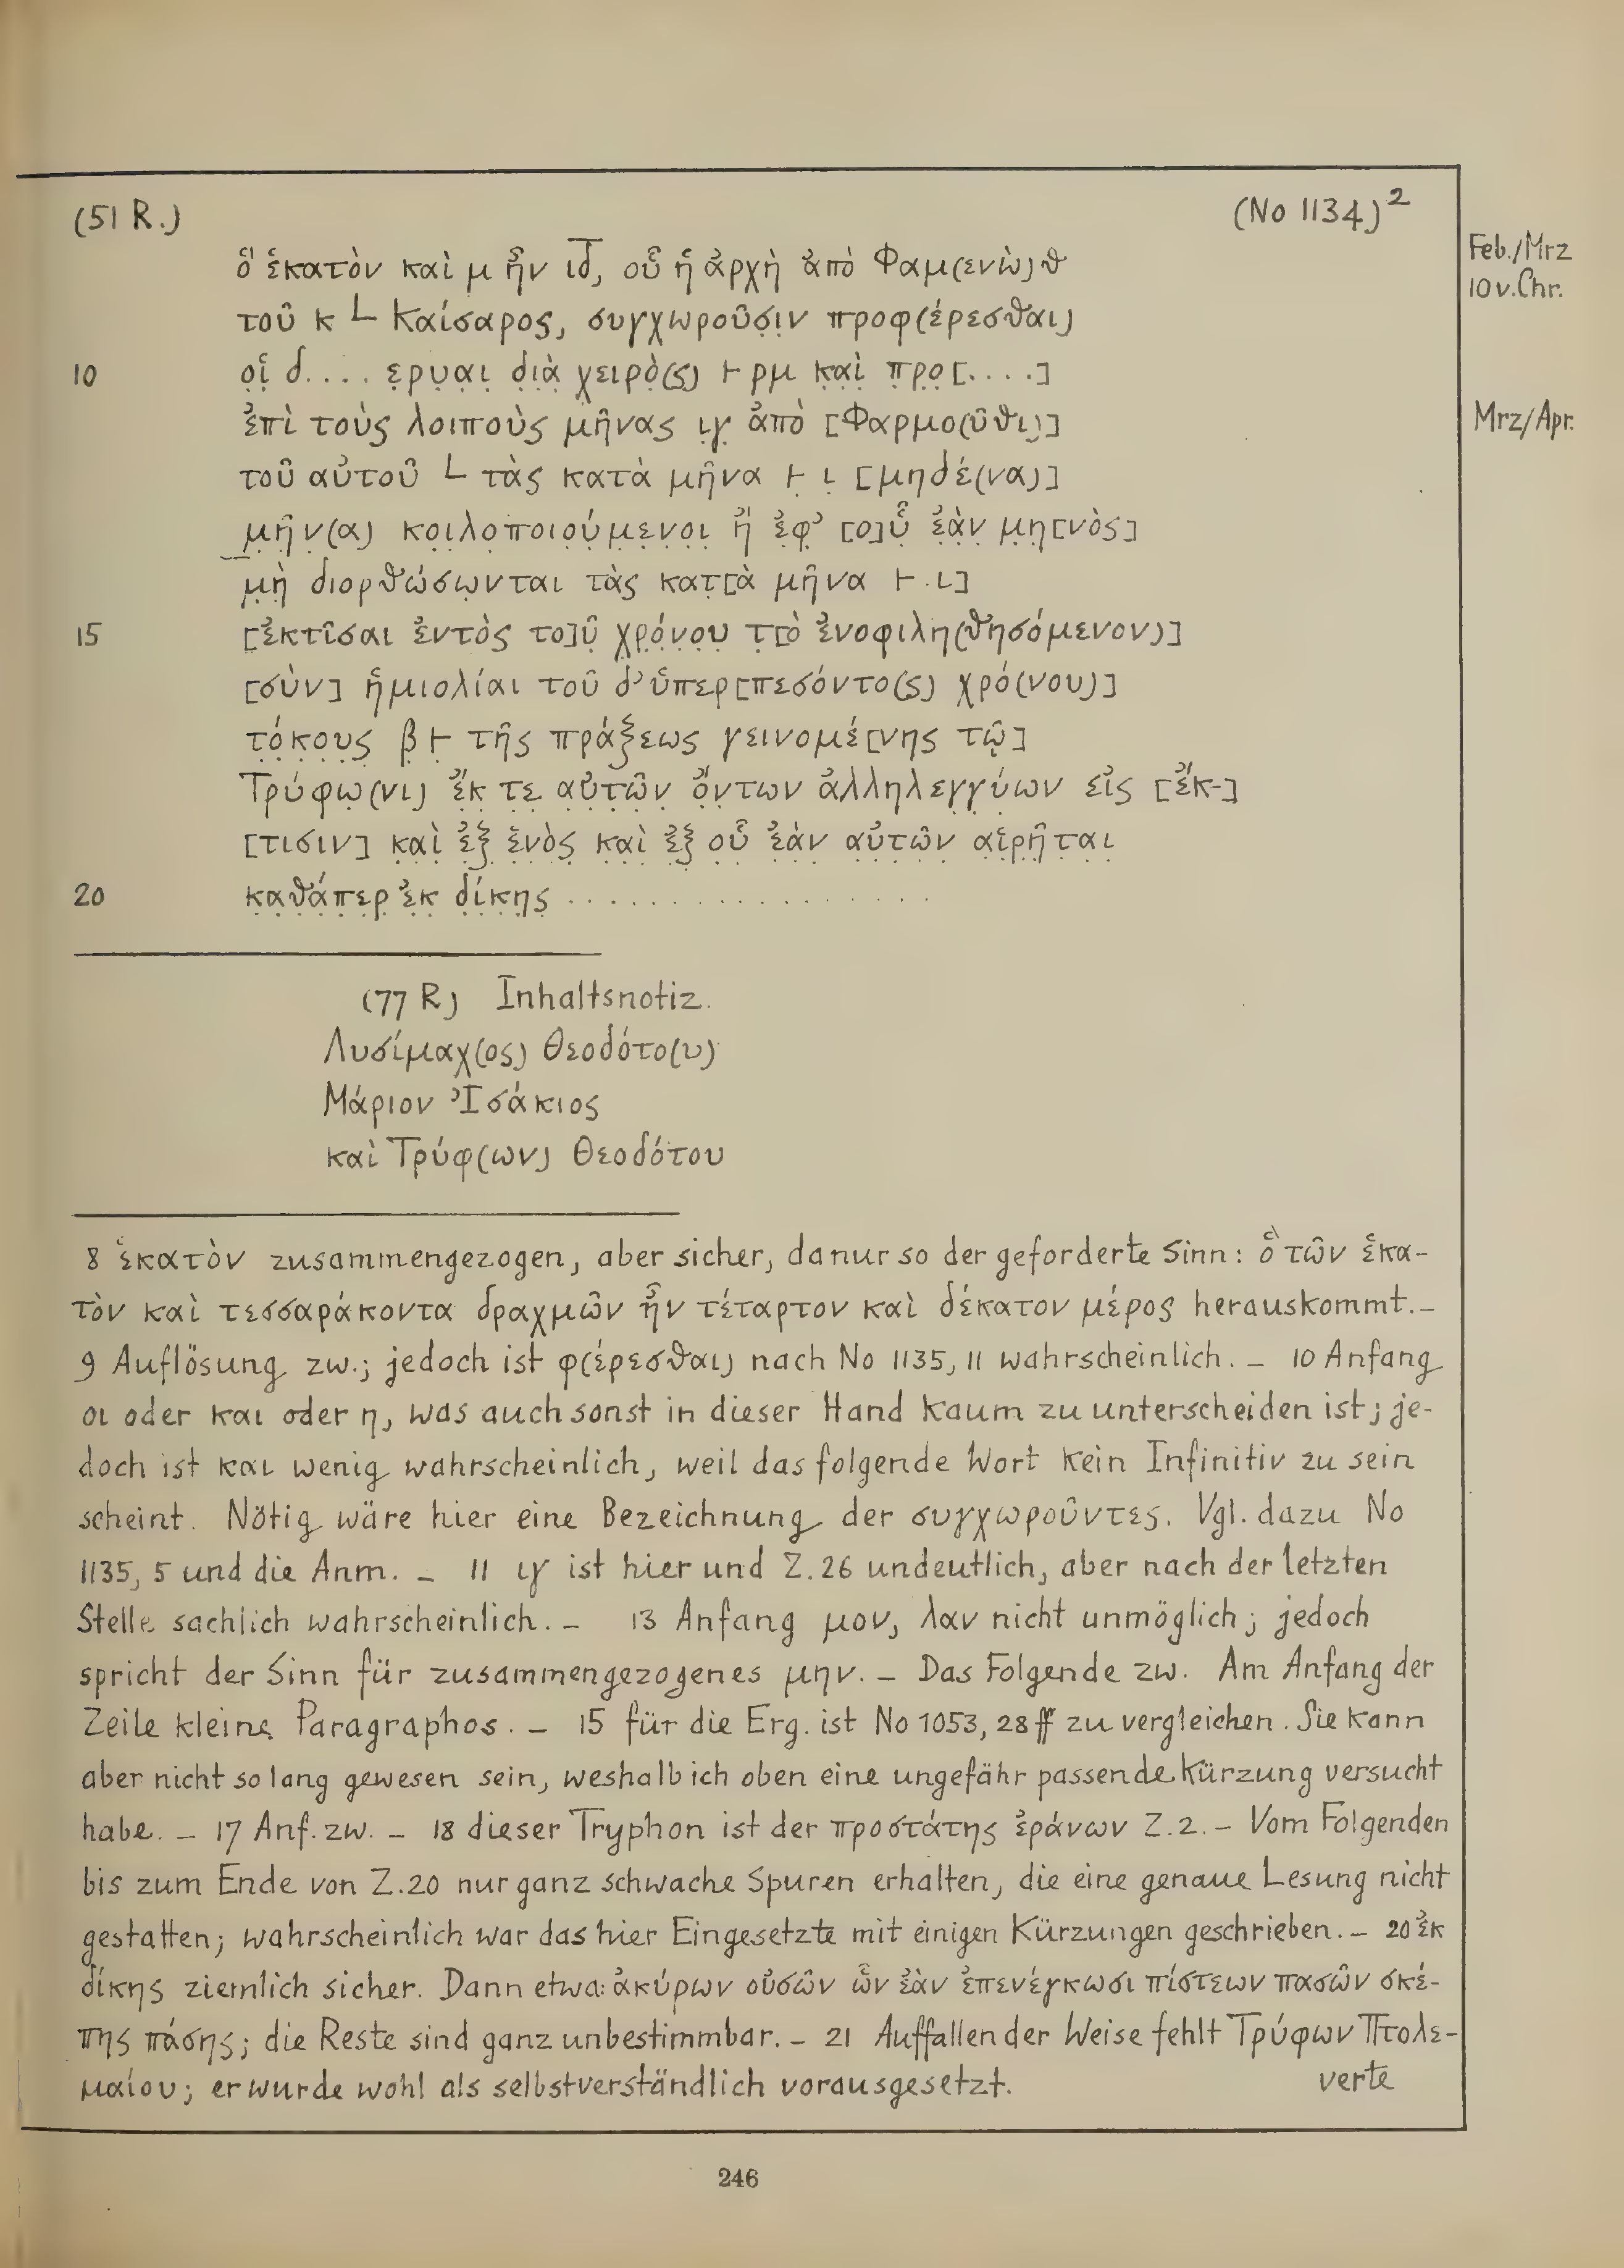 (51 R.)
(No 1134)²
ὃ ἑκατὸν καὶ μ ἦν ιδ̅, οὗ ἡ ἀρχὴ ἀπὸ Φαμ(ενὼ)θ
Feb./Mrz
10 v. Chr.
τοῦ κ L Καίσαρος, συγχωροῦσ̣ι̣ν προφ(έρεσθαι)
10 ο̣ἱ̣ δ.... ε̣ρ̣υ̣α̣ι̣ δ̣ι̣ὰ̣ χ̣ειρὸ̣(ς) ⊢ ρμ κ̣α̣ὶ̣ π̣ρ̣ο̣[....]
ἐπὶ τοὺς λοιποὺς μῆνας ι̣γ̣ ἀπὸ [Φαρμο(ῦθι)]
Mrz/Apr.
τοῦ αὐτοῦ L τὰς κατὰ μῆνα ⊢̣ ι̣ [μηδέ(να)]
μ̣ῆ̣ν̣(α) κ̣ο̣ι̣λ̣ο̣π̣ο̣ι̣ο̣ύ̣μ̣ε̣ν̣ο̣ι̣ ἢ̣ ἐ̣φ̣’ [ο]ὗ̣ ἐ̣ὰ̣ν μ̣η̣[νὸς]
μ̣ὴ̣ διορθώσω̣νται τὰς κατ̣[ὰ μῆνα ⊢ ι]
15 [ἐκτῖσαι ἐντὸς το]ῦ̣ χ̣ρ̣ό̣ν̣ο̣υ̣ τ̣[ὸ ἐνοφιλη(θησόμενον)]
[σὺν] ἡμιολίαι τοῦ δ’ ὑπερ[πεσόντο(ς) χρό(νου)]
τ̣ό̣κ̣ο̣υ̣ς̣ β̣ ⊢ τῆς πράξεως γεινομέ[νης τῷ]
Τρύφω̣(νι) ἔ̣κ̣ τ̣ε̣ α̣ὐ̣τ̣ῶ̣ν̣ ὄ̣ν̣των ἀλληλεγγύων εἰς [ἔκ-]
[τισιν] κ̣α̣ὶ̣ ἐ̣ξ̣ ἑ̣ν̣ὸ̣ς̣ κ̣α̣ὶ̣ ἐ̣ξ̣ ο̣ὗ̣ ἐ̣ὰ̣ν̣ α̣ὐ̣τ̣ῶ̣ν̣ α̣ἱ̣ρ̣ῆ̣τ̣α̣ι̣
20 κ̣α̣θ̣ά̣π̣ε̣ρ̣ ἐ̣κ̣ δ̣ί̣κ̣η̣ς̣ .................
(77 R) Inhaltsnotiz.
Λυσίμαχ(ος) Θεοδότο(υ)
Μάριον Ἰσάκιος
καὶ Τρύφ(ων) Θεοδότου
8 ἑκατὸν zusammengezogen, aber sicher, da nur so der geforderte Sinn: ὃ τῶν ἑκα-
τὸν καὶ τεσσαράκοντα δραχμῶν ἦν τέταρτον καὶ δέκατον μέρος herauskommt. –
9 Auflösung zw.; jedoch ist φ(έρεσθαι) nach No 1135, 11 wahrscheinlich. – 10 Anfang
οι oder και oder η, was auch sonst in dieser Hand kaum zu unterscheiden ist; je-
doch ist και wenig wahrscheinlich, weil das folgende Wort kein Infinitiv zu sein
scheint. Nötig wäre hier eine Bezeichnung der συγχωροῦντες. Vgl. dazu No
1135, 5 und die Anm. – 11 ιγ ist hier und Z. 26 undeutlich, aber nach der letzten
Stelle sachlich wahrscheinlich. – 13 Anfang μον, λαν nicht unmöglich; jedoch
spricht der Sinn für zusammengezogenes μην. – Das Folgende zw. Am Anfang der
Zeile kleine Paragraphos. – 15 für die Erg. ist No 1053, 28 ff zu vergleichen. Sie kann
aber nicht so lang gewesen sein, weshalb ich oben eine ungefähr passende Kürzung versucht
habe. – 17 Anf. zw. – 18 dieser Tryphon ist der προστάτης ἐράνων Z. 2. – Vom Folgenden
bis zum Ende von Z. 20 nur ganz schwache Spuren erhalten, die eine genaue Lesung nicht
gestatten; wahrscheinlich war das hier Eingesetzte mit einigen Kürzungen geschrieben. – 20 ἐκ
δίκης ziemlich sicher. Dann etwa: ἀκύρων οὐσῶν ὧν ἐὰν ἐπενέγκωσι πίστεων πασῶν σκέ-
πης πάσης; die Reste sind ganz unbestimmbar. – 21 Auffallender Weise fehlt Τρύφων Πτολε-
μαίου; er wurde wohl als selbstverständlich vorausgesetzt.
verte
246